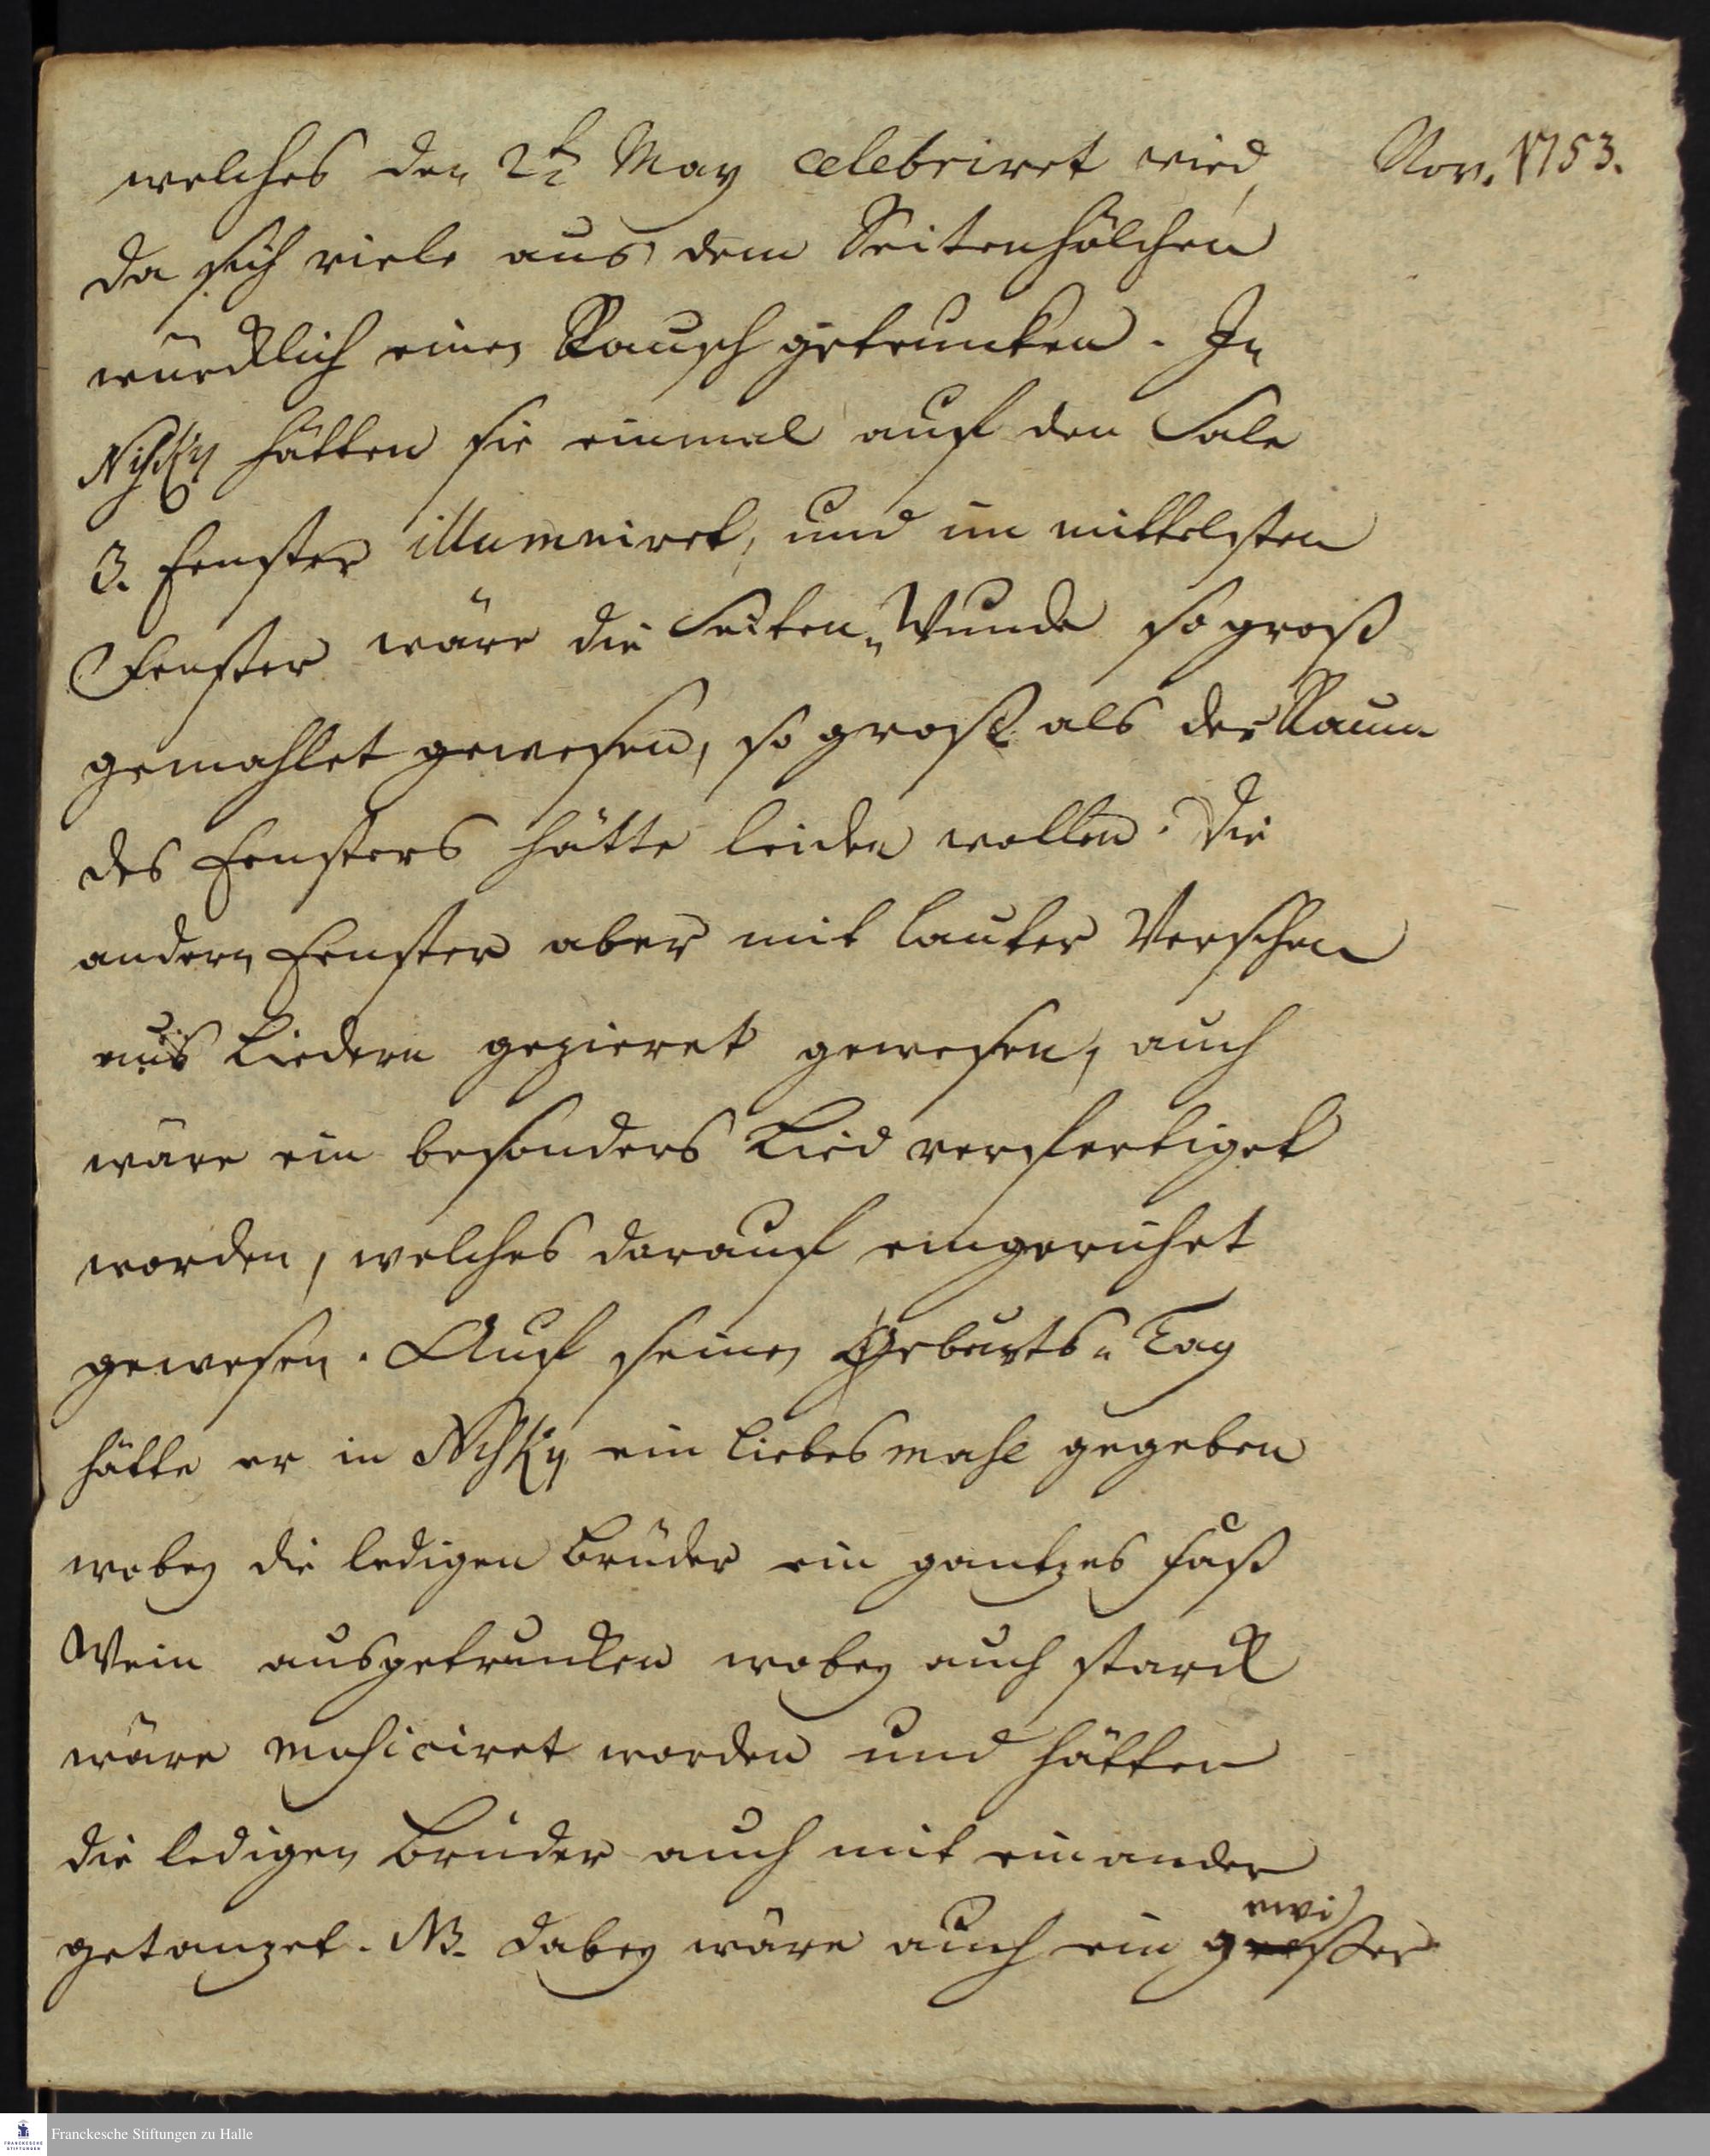 Nov. 1753.
welches den 2t May celebriret wird,
da sich viele aus dem Seitenhölchen
würcklich einen Rausch getruncken. In
Nisky hätten sie einmal auf den Sale
3. Fenster illumniret, und im mittelsten
Fenster wäre die Seiten-Wunde so groß
gemahlet gewesen, so groß als der Raum
des Fensters hätte leiden wollen. Die
andern Fenster aber mit lauter Verschen
aus Liedern gezieret gewesen, auch
wäre ein besonders Lied verfertiget
worden, welches darauf eingerichet
gewesen. Auf seinen Geburts-Tag
hätte er in Nisky ein Liebesmahl gegeben
wobey die ledigen Brüder ein gantzes Faß
Wein ausgetruncken wobey auch starck
wäre musiciret worden und hätten
die ledigen Brüder auch mit einander
getanzet. NB. dabey wäre auch ein gewisser
Franckesche Stiftungen zu Halle